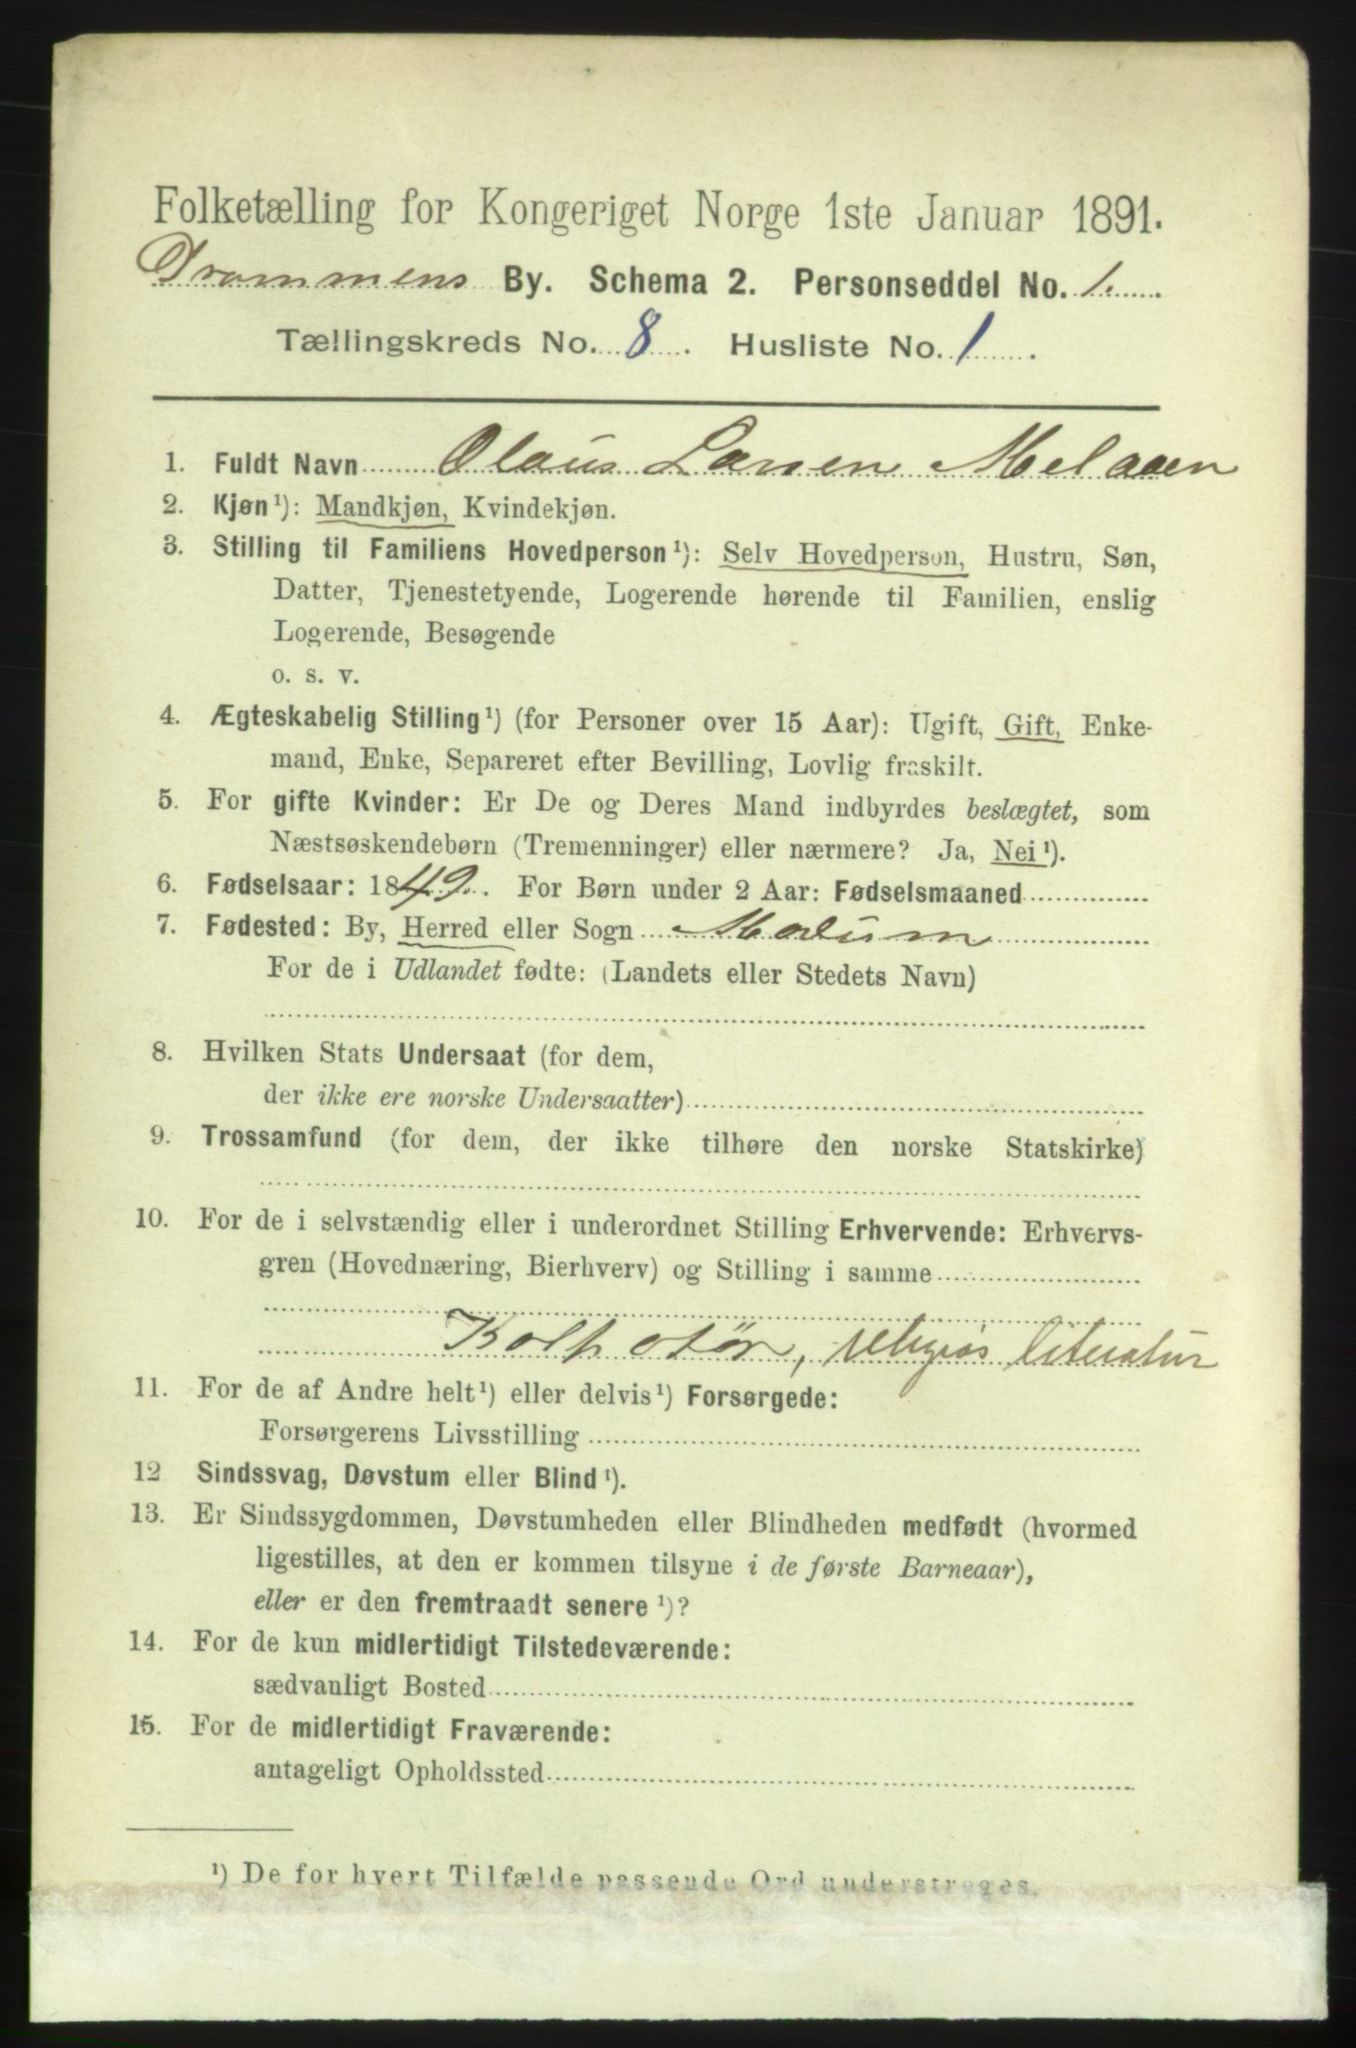 Folketælling for Kongeriget Norge 1ste Januar 1891.
Drammens By. Schema 2. Personseddel No. 1.
Tællingskreds No. 8. Husliste No. 1.
1. Fuldt Navn Olaus Larsen Melaaen
2. Kjøn¹): Mandkjøn, Kvindekjøn.
3. Stilling til Familiens Hovedperson¹): Selv Hovedperson, Hustru, Søn,
Datter, Tjenestetyende, Logerende hørende til Familien, enslig
Logerende, Besøgende
o. s. v.
4. Ægteskabelig Stilling¹) (for Personer over 15 Aar): Ugift, Gift, Enke-
mand, Enke, Separeret efter Bevilling, Lovlig fraskilt.
5. For gifte Kvinder: Er De og Deres Mand indbyrdes beslægtet, som
Næstsøskendebørn (Tremenninger) eller nærmere? Ja, Nei¹).
6. Fødselsaar: 1849. For Børn under 2 Aar: Fødselsmaaned
7. Fødested: By, Herred eller Sogn Modum
For de i Udlandet fødte: (Landets eller Stedets Navn)
8. Hvilken Stats Undersaat (for dem,
der ikke ere norske Undersaatter)
9. Trossamfund (for dem, der ikke tilhøre den norske Statskirke)
10. For de i selvstændig eller i underordnet Stilling Erhvervende: Erhvervs-
gren (Hovednæring, Bierhverv) og Stilling i samme
Kolpotør, religiøs literatur
11. For de af Andre helt¹) eller delvis¹) Forsørgede:
Forsørgerens Livsstilling
12 Sindssvag, Døvstum eller Blind¹).
13. Er Sindssygdommen, Døvstumheden eller Blindheden medfødt (hvormed
ligestilles, at den er kommen tilsyne i de første Barneaar),
eller er den fremtraadt senere¹)?
14. For de kun midlertidigt Tilstedeværende:
sædvanligt Bosted
15. For de midlertidigt Fraværende:
antageligt Opholdssted
¹) De for hvert Tilfælde passende Ord understreges.